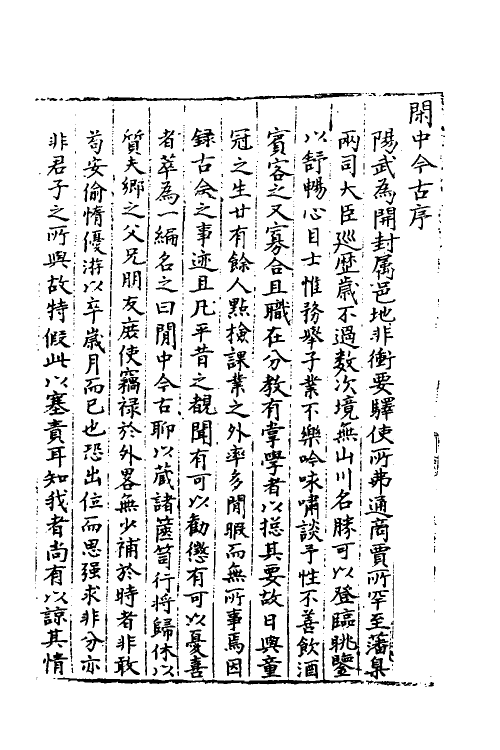 閑中今古序
陽武為開封属邑地非衝要驛使所弗通商賈所罕至藩臬
兩司大臣廵歴歳不過数次境無山川名勝可以登臨眺鑒
以舒暢心目士惟務舉子業不樂吟咏嘯談予性不善飲酒
賓客之又寡合且職在分教有掌學者以揔其要故日與童
冠之生廿有餘人點檢課業之外率多閒暇而無所事焉因
録古今之事迹且凡平昔之覩聞有可以勸懲有可以憂喜
者萃為一編名之曰閒中今古聊以蔵諸篋笥行将歸休以
質夫鄉之父兄朋友庶使竊禄於外畧無少補於時者非敢
苟安偷惰優游以卒歳月而已也恐出位而思强求非分亦
非君子之所與故特假此以塞責耳知我者尚有以諒其情